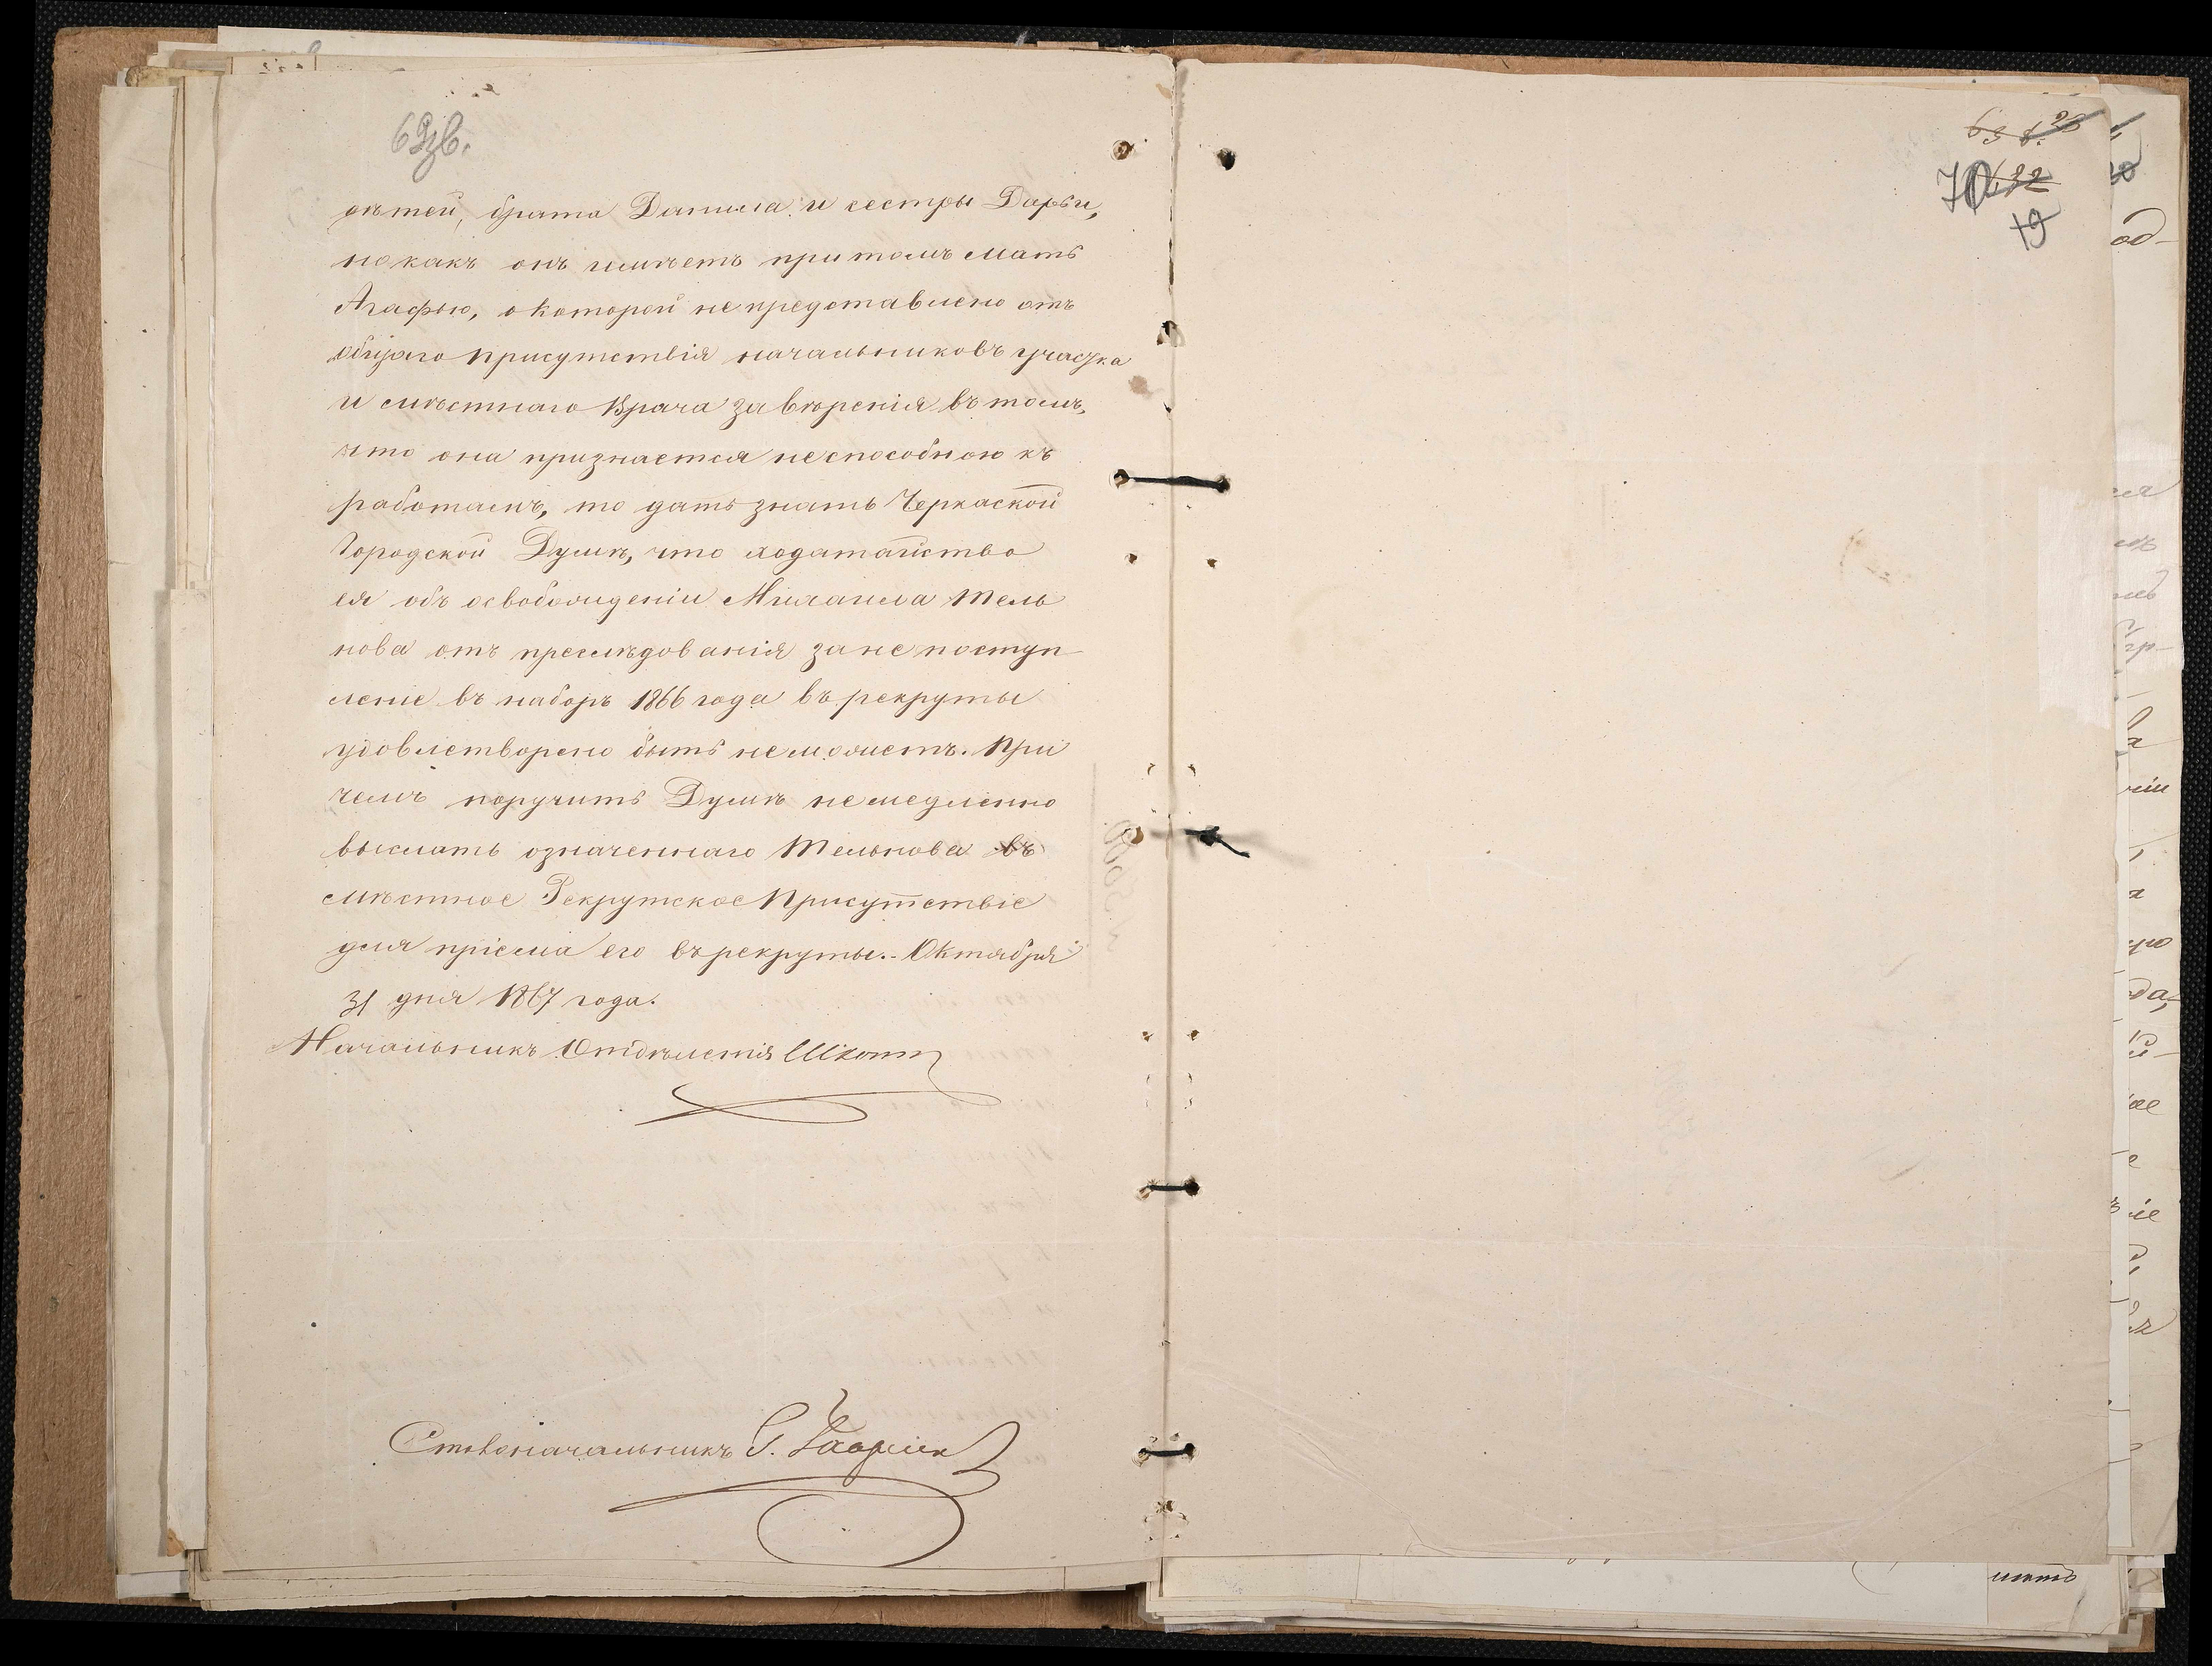 69 зв.
дѣтей, брата Данила и сестры Дарьи,
но какъ онъ имѣетъ притомъ мать
Агафью, о которой не представлено отъ
общаго присутствія начальниковъ участка
и мѣстнаго Врача завѣренія въ томъ,
что она признается неспособною къ
работамъ, то дать знать Черкаской
Городской Думѣ, что ходатайство
ея объ освобожденіи Михаила Тель
нова отъ преслѣдованія за не поступ-
леніе въ наборъ 1866 года въ рекруты
удовлетворено быть не можетъ. При
чемъ поручить Думѣ немедленно
выслать означеннаго Тельнова въ
мѣстное Рекрутское Присутствіе
для пріема его въ рекруты. Октября
31 дня 1867 года.
Начальникъ Отдѣленія
Столоначальникъ
70
19